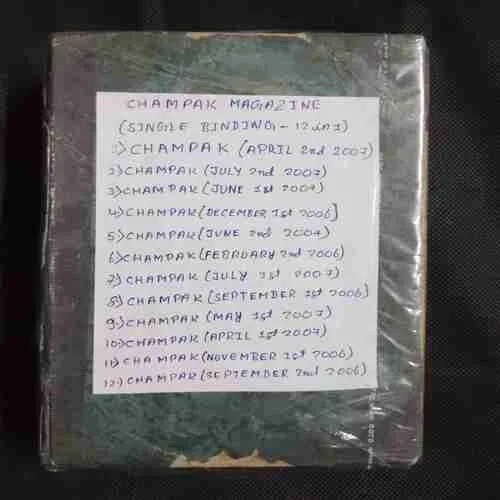 CHAMPAK MAGAZINE
(SINGLE BINDING - 12 in 1)
1) CHAMPAK (APRIL 2nd 2007)
2) CHAMPAK (JULY 2nd 2007)
3) CHAMPAK (JUNE 1st 2007)
4) CHAMPAK (DECEMBER 1st 2006)
5) CHAMPAK (JUNE 2nd 2007)
6) CHAMPAK (FEBRUARY 2nd 2006)
7) CHAMPAK (JULY 1st 2007)
8) CHAMPAK (SEPTEMBER 1st 2006)
9) CHAMPAK (MAY 1st 2007)
10) CHAMPAK (APRIL 1st 2007)
11) CHAMPAK (NOVEMBER 1st 2006)
12) CHAMPAK (SEPTEMBER 2nd 2006)